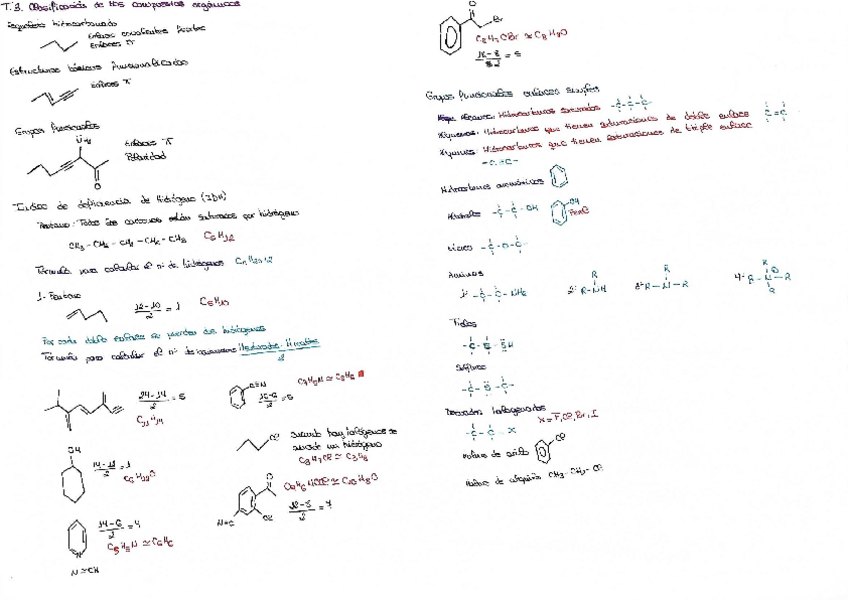 T.3. Clasificación de los compuestos orgánicos
Esqueleto hidrocarbonado
Enlaces covalentes
Enlaces π
Estructuras básicas funcionalizadas
Enlaces π
Grupos funcionales
NH₂
Enlaces π
Polaridad
O
Índice de deficiencia de hidrógeno (IDH)
Pentano: Todos los carbonos están saturados por hidrógeno
CH₃-CH₂-CH₂-CH₂-CH₃ C₅H₁₂
Fórmula para calcular el nº de hidrógenos CnH2n+2
1-Penteno
12-10/2 = 1 C₅H₁₀
Por cada doble enlace se pierden dos hidrógenos
Fórmula para calcular el nº de insaturaciones
2
24-14/2 = 5
C₁₁H₁₄
OH
C₆H₁₂O
14-6/2 = 4
C₅H₅N ≃ C₆H₆
N ≃ CH
C≡N
C₇H₅N ≃ C₈H₆
Cl
Cuando hay halógenos se
un hidrógeno
C₃H₇Cl ≃ C₃H₈
O
N≡C
Cl
O
Br
C₈H₇OBr ≃ C₈H₈O
18-8/2 = 5
Grupos funcionales enlaces simples
Hidrocarburos saturados -C-C-C-
Alquenos: Hidrocarburos que tienen saturaciones de doble enlace C=C
Alquinos: Hidrocarburos que tienen saturaciones de triple enlace
-C≡C-
Hidrocarburos aromáticos
Alcoholes -C-C-OH OH
Fenol
Éteres -C-O-C-
Aminas
1º -C-C-NH₂ 2º R-NH R 3º R-N-R R 4º R-N-R R R
Tioles
-C-C-SH
Sulfuros
-C-S-C-
Derivados halogenados X=F, Cl, Br, I
-C-C-X
Haluro de arilo Cl
Haluro de alquilo CH₃-CH₂-Cl